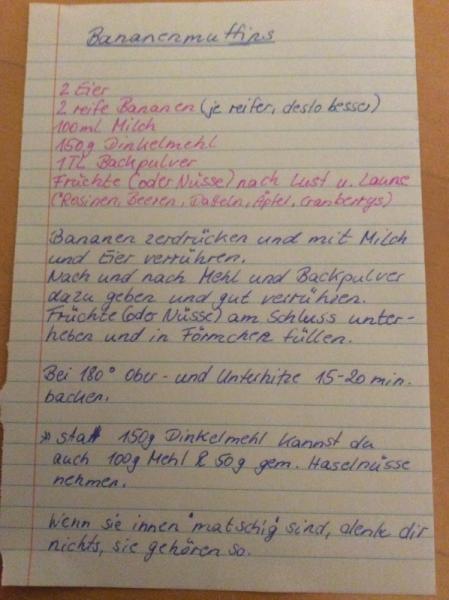 Bananenmuffins
2 Eier
2 reife Bananen (je reifer, desto besser)
100ml Milch
150g Dinkelmehl
1TL Backpulver
Früchte (oder Nüsse) nach Lust u. Laune
(Rosinen, Beeren, Datteln, Äpfel, Cranberrys)
Bananen zerdrücken und mit Milch
und Eier verrühren.
Nach und nach Mehl und Backpulver
dazu geben und gut verrühren.
Früchte (oder Nüsse) am Schluss unter-
heben und in Förmchen füllen.
Bei 180° Ober- und Unterhitze 15-20 min.
backen.
* statt 150g Dinkelmehl kannst du
auch 100g Mehl & 50g gem. Haselnüsse
nehmen.
Wenn sie innen "matschig" sind, denk dir
nichts, sie gehören so.